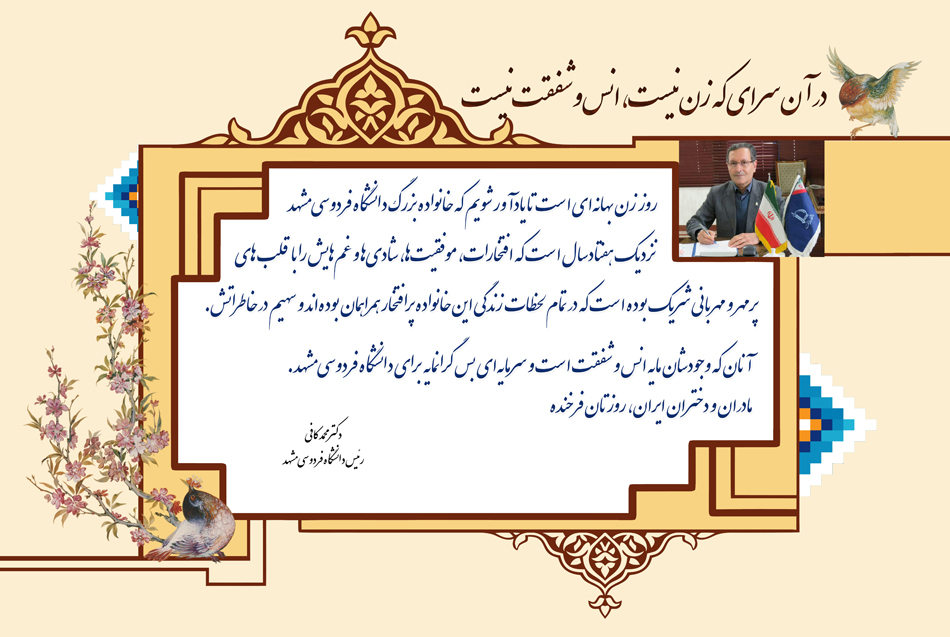 در آن سرای که زن نیست، انس و شفقت نیست
روز زن بهانه‌ای است تا یادآور شویم که خانواده بزرگ دانشگاه فردوسی مشهد
نزدیک هفتاد سال است که افتخارات، موفقیت‌ها، شادی‌ها و غم‌هایش را با قلب‌های
پرمهر و مهربانی شریک بوده است که در تمام لحظات زندگی این خانواده پرافتخار همراهمان بوده‌اند و سهیم در خاطراتش.
آنان که وجودشان مایه انس و شفقت است و سرمایه‌ای بس گرانمایه برای دانشگاه فردوسی مشهد.
مادران و دختران ایران، روزتان فرخنده
دکتر محمد کافی
رئیس دانشگاه فردوسی مشهد